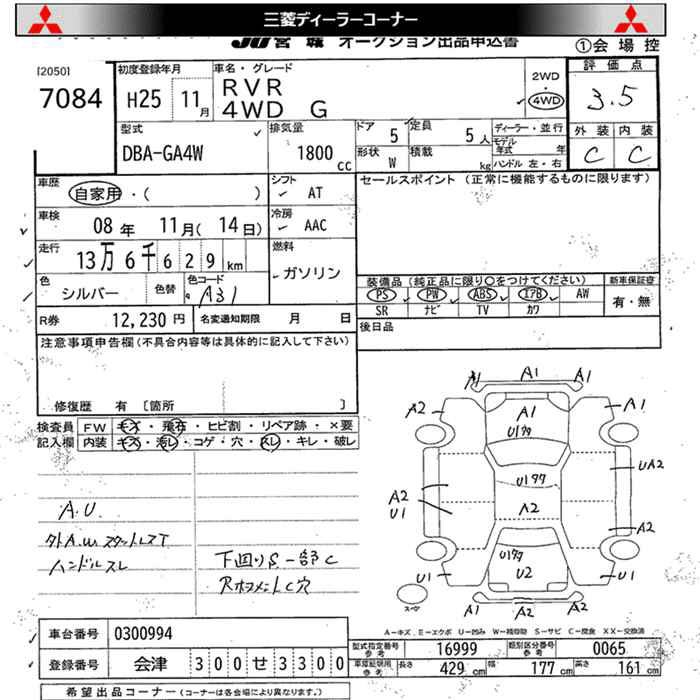 三菱ディーラーコーナー
JU宮城 オークション出品申込書
①会場控
[2050]
7084
初度登録年月
H25 11月
車名・グレード
RVR
4WD G
2WD
4WD
評価点
3.5
外装 内装
C C
型式
DBA-GA4W
排気量
1800 cc
ドア 5
定員 5人
形状 W
積載 kg
ディーラー・並行
モデル年式 年
ハンドル 左・右
車歴
自家用・( )
シフト
AT
セールスポイント (正常に機能するものに限ります)
車検
08年 11月(14日)
冷房
AAC
走行
13万6千629km
燃料
ガソリン
色
シルバー
色替
色コード
A31
装備品 (純正品に限り○をつけてください)
新車保証書
PS PW ABS エアB AW
有・無
SR ナビ TV カワ
R券 12,230円
名変通知期限 月 日
後日品
注意事項申告欄(不具合内容等は具体的に記入して下さい)
修復歴 有 [箇所 ]
検査員記入欄
FW キズ・飛石・ヒビ割・リペア跡・×要
内装 キズ・汚レ・コゲ・穴・スレ・キレ・破レ
A.U.
外A.W.スタットレスT
ハンドルスレ
下回りS一部C
RホフメントC穴
A1 A1 A1
A2 A1 A1
U1 U1
U177
UA2
A2
U1
A2
A2
U177
U1 U2 U1
スペア
A1 A2 A2
A-キズ、E-エクボ U-凹み W-補修跡 S-サビ C-腐食 XX-交換済
車台番号 0300994
型式指定番号 参考 16999
類別区分番号 参考 0065
登録番号 会津 300せ3300
車庫証明用 参考 長さ 429cm 幅 177cm 高さ 161cm
希望出品コーナー(コーナーは各会場により異なります。)